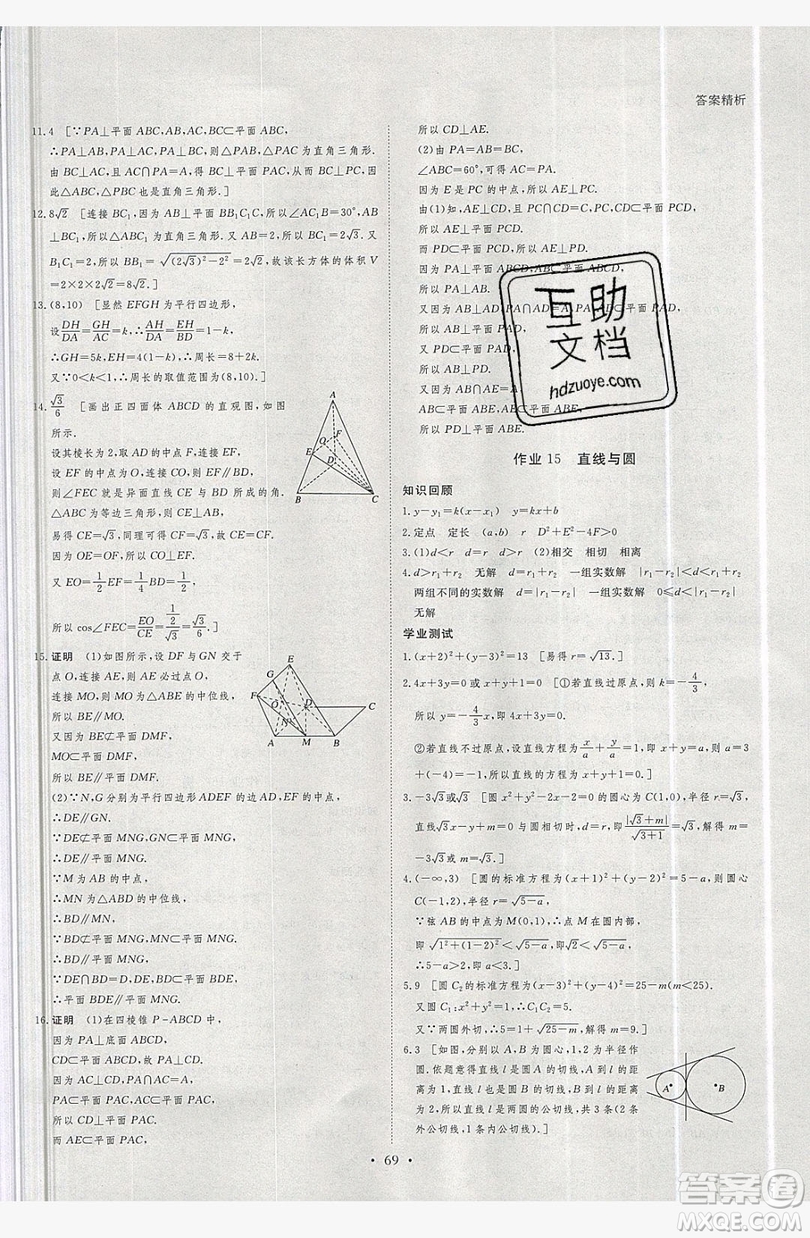 答案精析
11.4 [∵PA⊥平面ABC,AB,AC,BC⊂平面ABC,
∴PA⊥AB,PA⊥AC,PA⊥BC,则△PAB,△PAC为直角三角形.
由BC⊥AC,且AC∩PA=A,得BC⊥平面PAC,从而BC⊥PC,因
此△ABC,△PBC也是直角三角形.]
12.8√2 [连接BC₁,因为AB⊥平面BB₁C₁C,所以∠AC₁B=30°,AB
⊥BC₁,所以△ABC₁为直角三角形.又AB=2,所以BC₁=2√3.又
B₁C₁=2,所以BB₁=√((2√3)²-2²)=2√2,故该长方体的体积V
=2×2×2√2=8√2.]
13.(8,10) [显然EFGH为平行四边形,
设DH/DA=GH/AC=k,∴AH/DA=EH/BD=1-k,
∴GH=5k,EH=4(1-k),∴周长=8+2k.
又∵0<k<1,∴周长的取值范围为(8,10).]
14.√3/6 [画出正四面体ABCD的直观图,如图
所示.
设其棱长为2,取AD的中点F,连接EF,
设EF的中点为O,连接CO,则EF∥BD,
则∠FEC就是异面直线CE与BD所成的角.
△ABC为等边三角形,则CE⊥AB,
易得CE=√3,同理可得CF=√3,故CE=CF.
因为OE=OF,所以CO⊥EF.
又EO=1/2EF=1/4BD=1/2,
所以cos∠FEC=EO/CE=(1/2)/√3=1/(2√3)=√3/6.]
A
F
Q
E
D
B
C
15.证明 (1)如图所示,设DF与GN交于
点O,连接AE,则AE必过点O,
连接MO,则MO为△ABE的中位线,
所以BE∥MO.
又因为BE⊄平面DMF,
MO⊂平面DMF,
所以BE∥平面DMF.
E
G
F
O
D
C
N
A
M
B
(2)∵N,G分别为平行四边形ADEF的边AD,EF的中点,
∴DE∥GN.
又∵DE⊄平面MNG,GN⊂平面MNG,
∴DE∥平面MNG.
又∵M为AB的中点,
∴MN为△ABD的中位线,
∴BD∥MN.
又∵BD⊄平面MNG,MN⊂平面MNG,
∴BD∥平面MNG.
又∵DE∩BD=D,DE,BD⊂平面BDE,
∴平面BDE∥平面MNG.
16.证明 (1)在四棱锥P-ABCD中,
因为PA⊥底面ABCD,
CD⊂平面ABCD,所以PA⊥CD.
因为AC⊥CD,PA∩AC=A,
PA,AC⊂平面PAC,
所以CD⊥平面PAC.
而AE⊂平面PAC,
所以CD⊥AE.
(2)由PA=AB=BC,
∠ABC=60°,可得AC=PA.
因为E是PC的中点,所以AE⊥PC.
由(1)知,AE⊥CD,PC∩CD=C,
所以AE⊥平面PCD.
而PD⊂平面PCD,
所以AE⊥PD.
因为PA⊥底面ABCD,所以PA⊥AB.
又因为AB⊥AD,PA∩AD=A,
所以AB⊥平面PAD,
又PD⊂平面PAD,
所以AB⊥PD.
又因为AB∩AE=A,
AB⊂平面ABE,AE⊂平面ABE,
所以PD⊥平面ABE.
互助
文档
hdzuoye.com
作业15 直线与圆
知识回顾
1.y-y₁=k(x-x₁) y=kx+b
2.定点 定长 (a,b) r D²+E²-4F>0
3.(1)d<r d=r d>r (2)相交 相切 相离
4.d>r₁+r₂ 无解 d=r₁+r₂ 一组实数解 |r₁-r₂|<d<r₁+r₂
两组不同的实数解 d=|r₁-r₂| 一组实数解 0≤d<|r₁-r₂|
无解
学业测试
1.(x+2)²+(y-3)²=13 [易得r=√13.]
2.4x+3y=0或x+y+1=0 [①若直线过原点,则k=-4/3,
所以y=-4/3x,即4x+3y=0.
②若直线不过原点,设直线方程为x/a+y/a=1,即x+y=a.则a=3+
(-4)=-1,所以直线的方程为x+y+1=0.]
3.-3√3或√3 [圆x²+y²-2x-2=0的圆心为C(1,0),半径r=√3,
直线√3x-y+m=0与圆相切时,d=r,即|√3+m|/√(3+1)=√3,解得m=
-3√3或m=√3.]
4.(-∞,3) [圆的标准方程为(x+1)²+(y-2)²=5-a,则圆心
C(-1,2),半径r=√(5-a),
∵弦AB的中点为M(0,1),∴点M在圆内部,
即√(1²+(1-2)²)<√(5-a),即√2<√(5-a),
∴5-a>2,即a<3.]
5.9 [圆C₂的标准方程为(x-3)²+(y-4)²=25-m(m<25).
又圆C₁:x²+y²=1,∴|C₁C₂|=5.
又∵两圆外切,∴5=1+√(25-m),解得m=9.]
6.3 [如图,分别以A,B为圆心,1,2为半径作
圆.依题意得直线l是圆A的切线,A到l的距
离为1,直线l也是圆B的切线,B到l的距离为
2,所以直线l是两圆的公切线,共3条(2条外
公切线,1条内公切线).]
A
B
69
答案圈
MXQE.COM